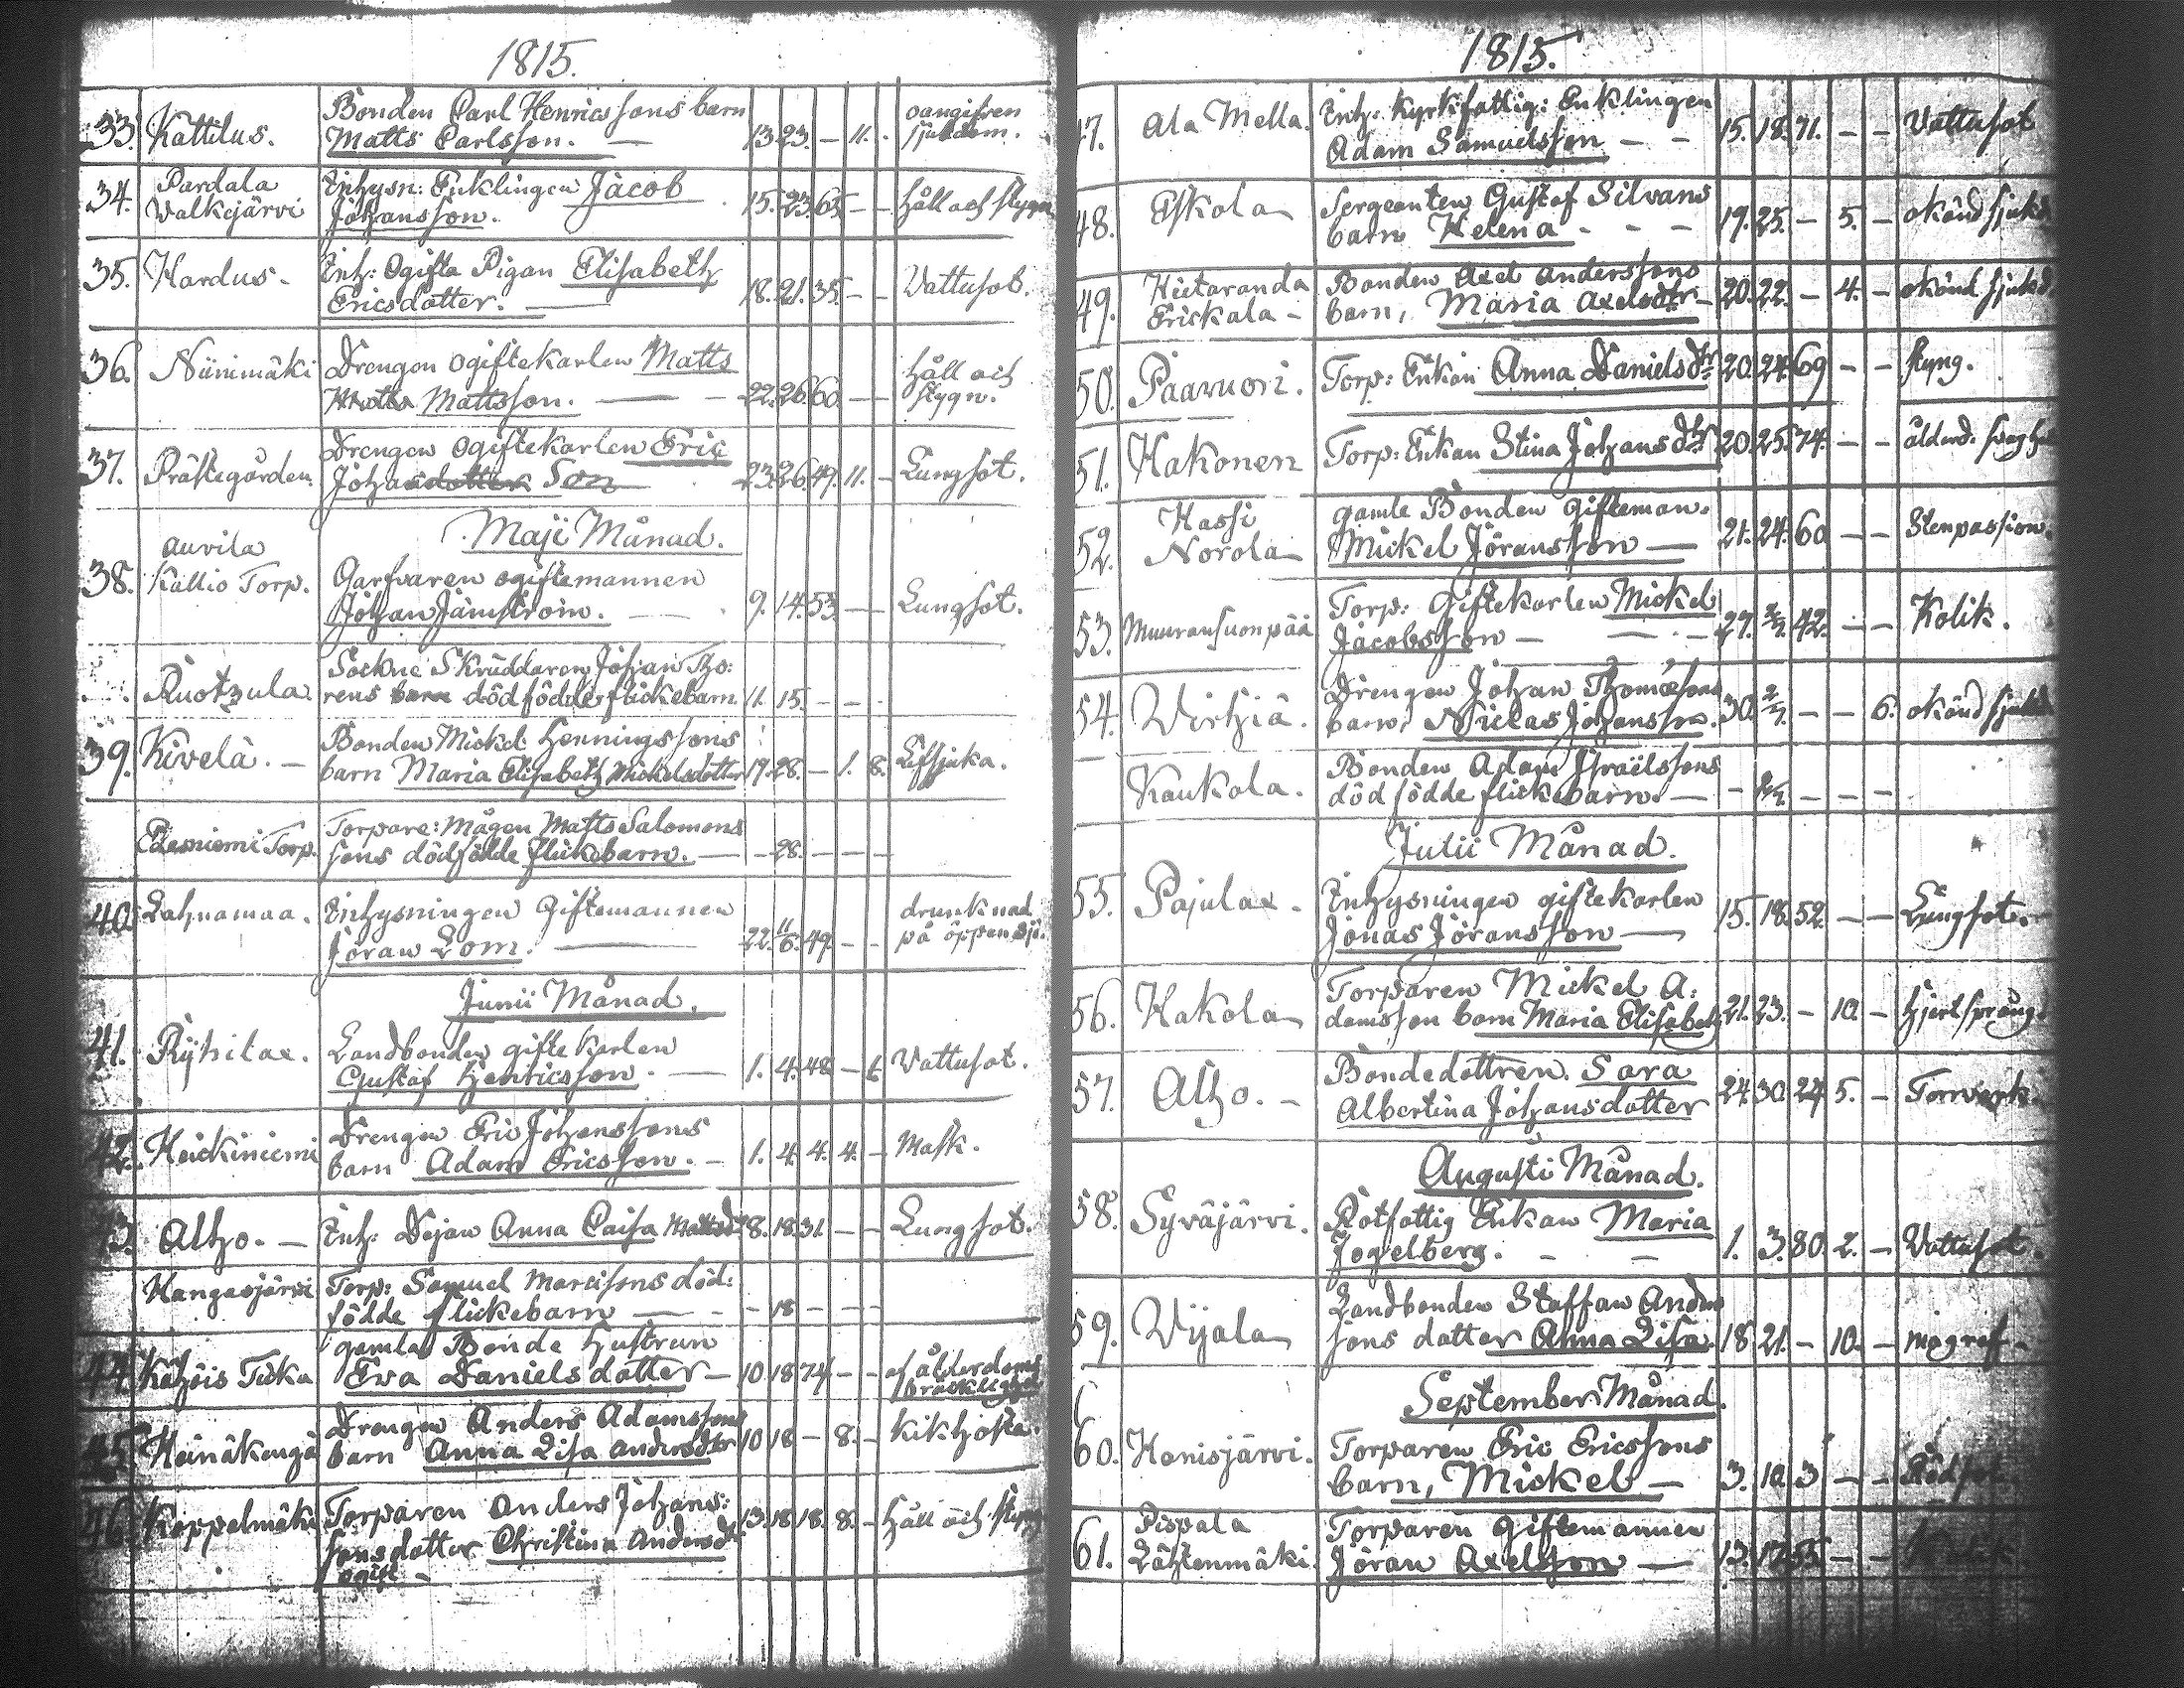 1815.
33. Kattilus. Bonden Carl Henricssons barn
Matts Carlsson. — 13. 23. — 11. - oangifven sjukdom.
34. Pardala Walkejärvi Inhysn: Enklingen Jacob
Johansson. 15. 23. 65. — — Håll och stygn
35. Hardus. Inh: Ogifta Pigan Elisabeth
Ericsdotter. — 18. 21. 35. — — Vattusot.
36. Niinimäki Drengen ogifte karlen Matts
Mattsson. — 22. 26. 60. — — Håll och stygn.
37. Prästegården. Drengen ogifte karlen Eric
Johansdotter Son 23. 26. 49. 11. — Lungsot.
Maji Månad.
38. Auvila Kallio Torp. Garfvaren ogiftemannen
Johan Jämström. — 9. 14. 53. — — Lungsot.
Ruotzula. Sockne Skräddaren Johan Tho:
rens barn dödfödde flickebarn. 11. 15. — —
39. Kivelä. — Bonden Mickel Henningssons
barn Maria Elisabeth Mickelsdotter 19. 28. — 1. 8. Lifsjuka.
Edesniemi Torp. Torpare: Mågen Matts Salomons
sons dödfödde flickebarn. — — 28. — — —
40. Lahnamaa. Inhysningen Giftemannen
Jöran Lom. — 22. 11/6. 49. — — drunknad på öppen sjö.
Junii Månad.
41. Ryhilax. Landbonden gifte karlen
Gustaf Henricsson. — 1. 4. 48 — 6 Vattusot.
42. Heickiniemi Drengen Eric Johanssons
barn Adam Ericsson. — 1. 4. 4. 4. — Mask.
43. Alho. — Inh: Dejan Anna Caisa Mattsdr 8. 18. 31. — — Lungsot.
Hangasjärvi Torp: Samuel Marcisons död:
födde flickebarn — — 18 — — —
44. Kähöis Tuka gamla Bonde Hustrun
Eva Daniels dotter — 10 18 74 — — af ålderdoms bräcklighet
45. Heinäkengä Drengen Anders Adamssons
barn Anna Lisa Andersdtr 10 18 — 8. — Kikhosta.
46. Koppelmäki Torparen Anders Johans:
sons dotter Christina Andersdr 13. 18 18. 8. — Håll och styng
ogift —
1815.
47. Ala Mella. Inh: Kyrkfattig: Enklingen
Adam Samuelsson — — 15. 18. 71. — — Vattusot
48. Eskola Sergeanten Gustaf Silvans
barn Helena - - - 19. 25. — 5. — okänd sjukd.
49. Hietaranda Eriskala — Bonden Axel Anderssons
barn, Maria Axelsdtr — 20. 22. — 4. — okänd sjukd.
50. Paavuori. Torp: Enkan Anna Danielsdr 20. 24. 69 — — styng.
51. Hakonen Torp: Enkan Stina Johansdtr 20. 25. 74. — — ålderd. svaghet
52. Hassi Norola gamle Bonden Gifteman.
Mickel Jöransson — 21. 24. 60 — — Stenpassion.
53. Muuransuonpää Torp: Giftekarlen Mickel
Jacobsson — — 27. 2/7. 42. — — Kolik.
54. Wirhiä. Drengen Johan Thomæsons
barn, Niclas Johanssn. 30. 2/7. — — 6. okänd sjukd
Kaukola. Bonden Adam Israëlssons
död födde flickebarn. — — 2/7. — — —
Julii Månad.
55. Pajulax. Inhysningen giftekarlen
Jonas Jöransson — 15. 18. 52. — — Lungsot.
56. Hakola Torparen Mickel A:
damsson barn Maria Elisabeth 21. 23. — 10. — Hjertsprång.
57. Alho. — Bondedottren Sara
Albertina Johansdotter 24. 30. 24. 5. — Torrverk.
Augusti Månad.
58. Syväjärvi. Rotfattig Enkan Maria
Fogelberg. — — 1. 3. 80. 2. — Vattusot.
59. Wijala Landbonden Staffan Anders
sons dotter Anna Lisa. 18. 21. — 10. — magref.
September Månad.
60. Konisjärvi. Torparen Eric Ericssons
barn, Mickel — 3. 10. 3 — — Rödsot.
61. Pispala Lähtenmäki. Torparen giftemannen
Jöran Axelsson — 13. 17. 55. — —